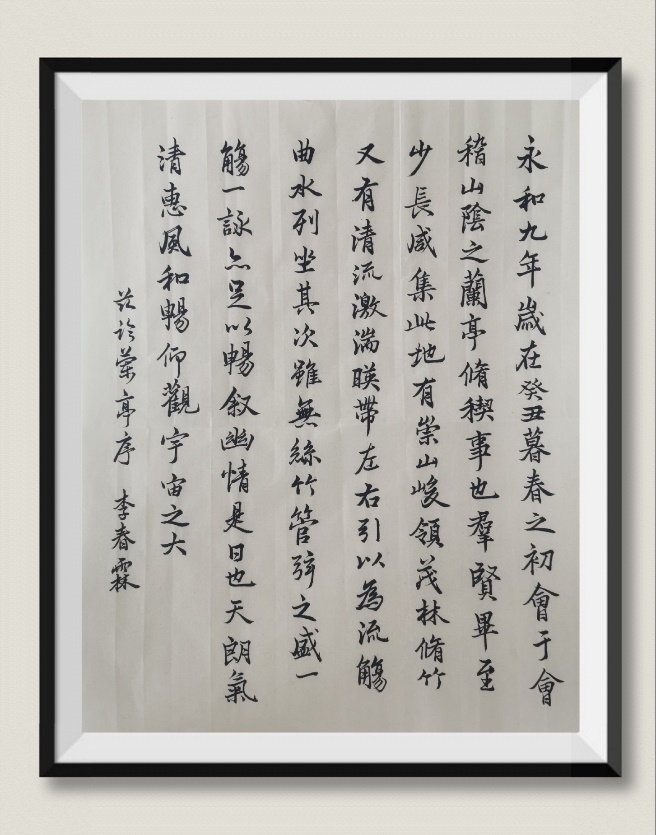 永和九年歲在癸丑暮春之初會于會
稽山陰之蘭亭脩稧事也羣賢畢至
少長咸集此地有崇山峻領茂林脩竹
又有清流激湍暎帶左右引以為流觴
曲水列坐其次雖無絲竹管弦之盛一
觴一詠亦足以暢叙幽情是日也天朗氣
清惠風和暢仰觀宇宙之大
蘭亭序 李春霖